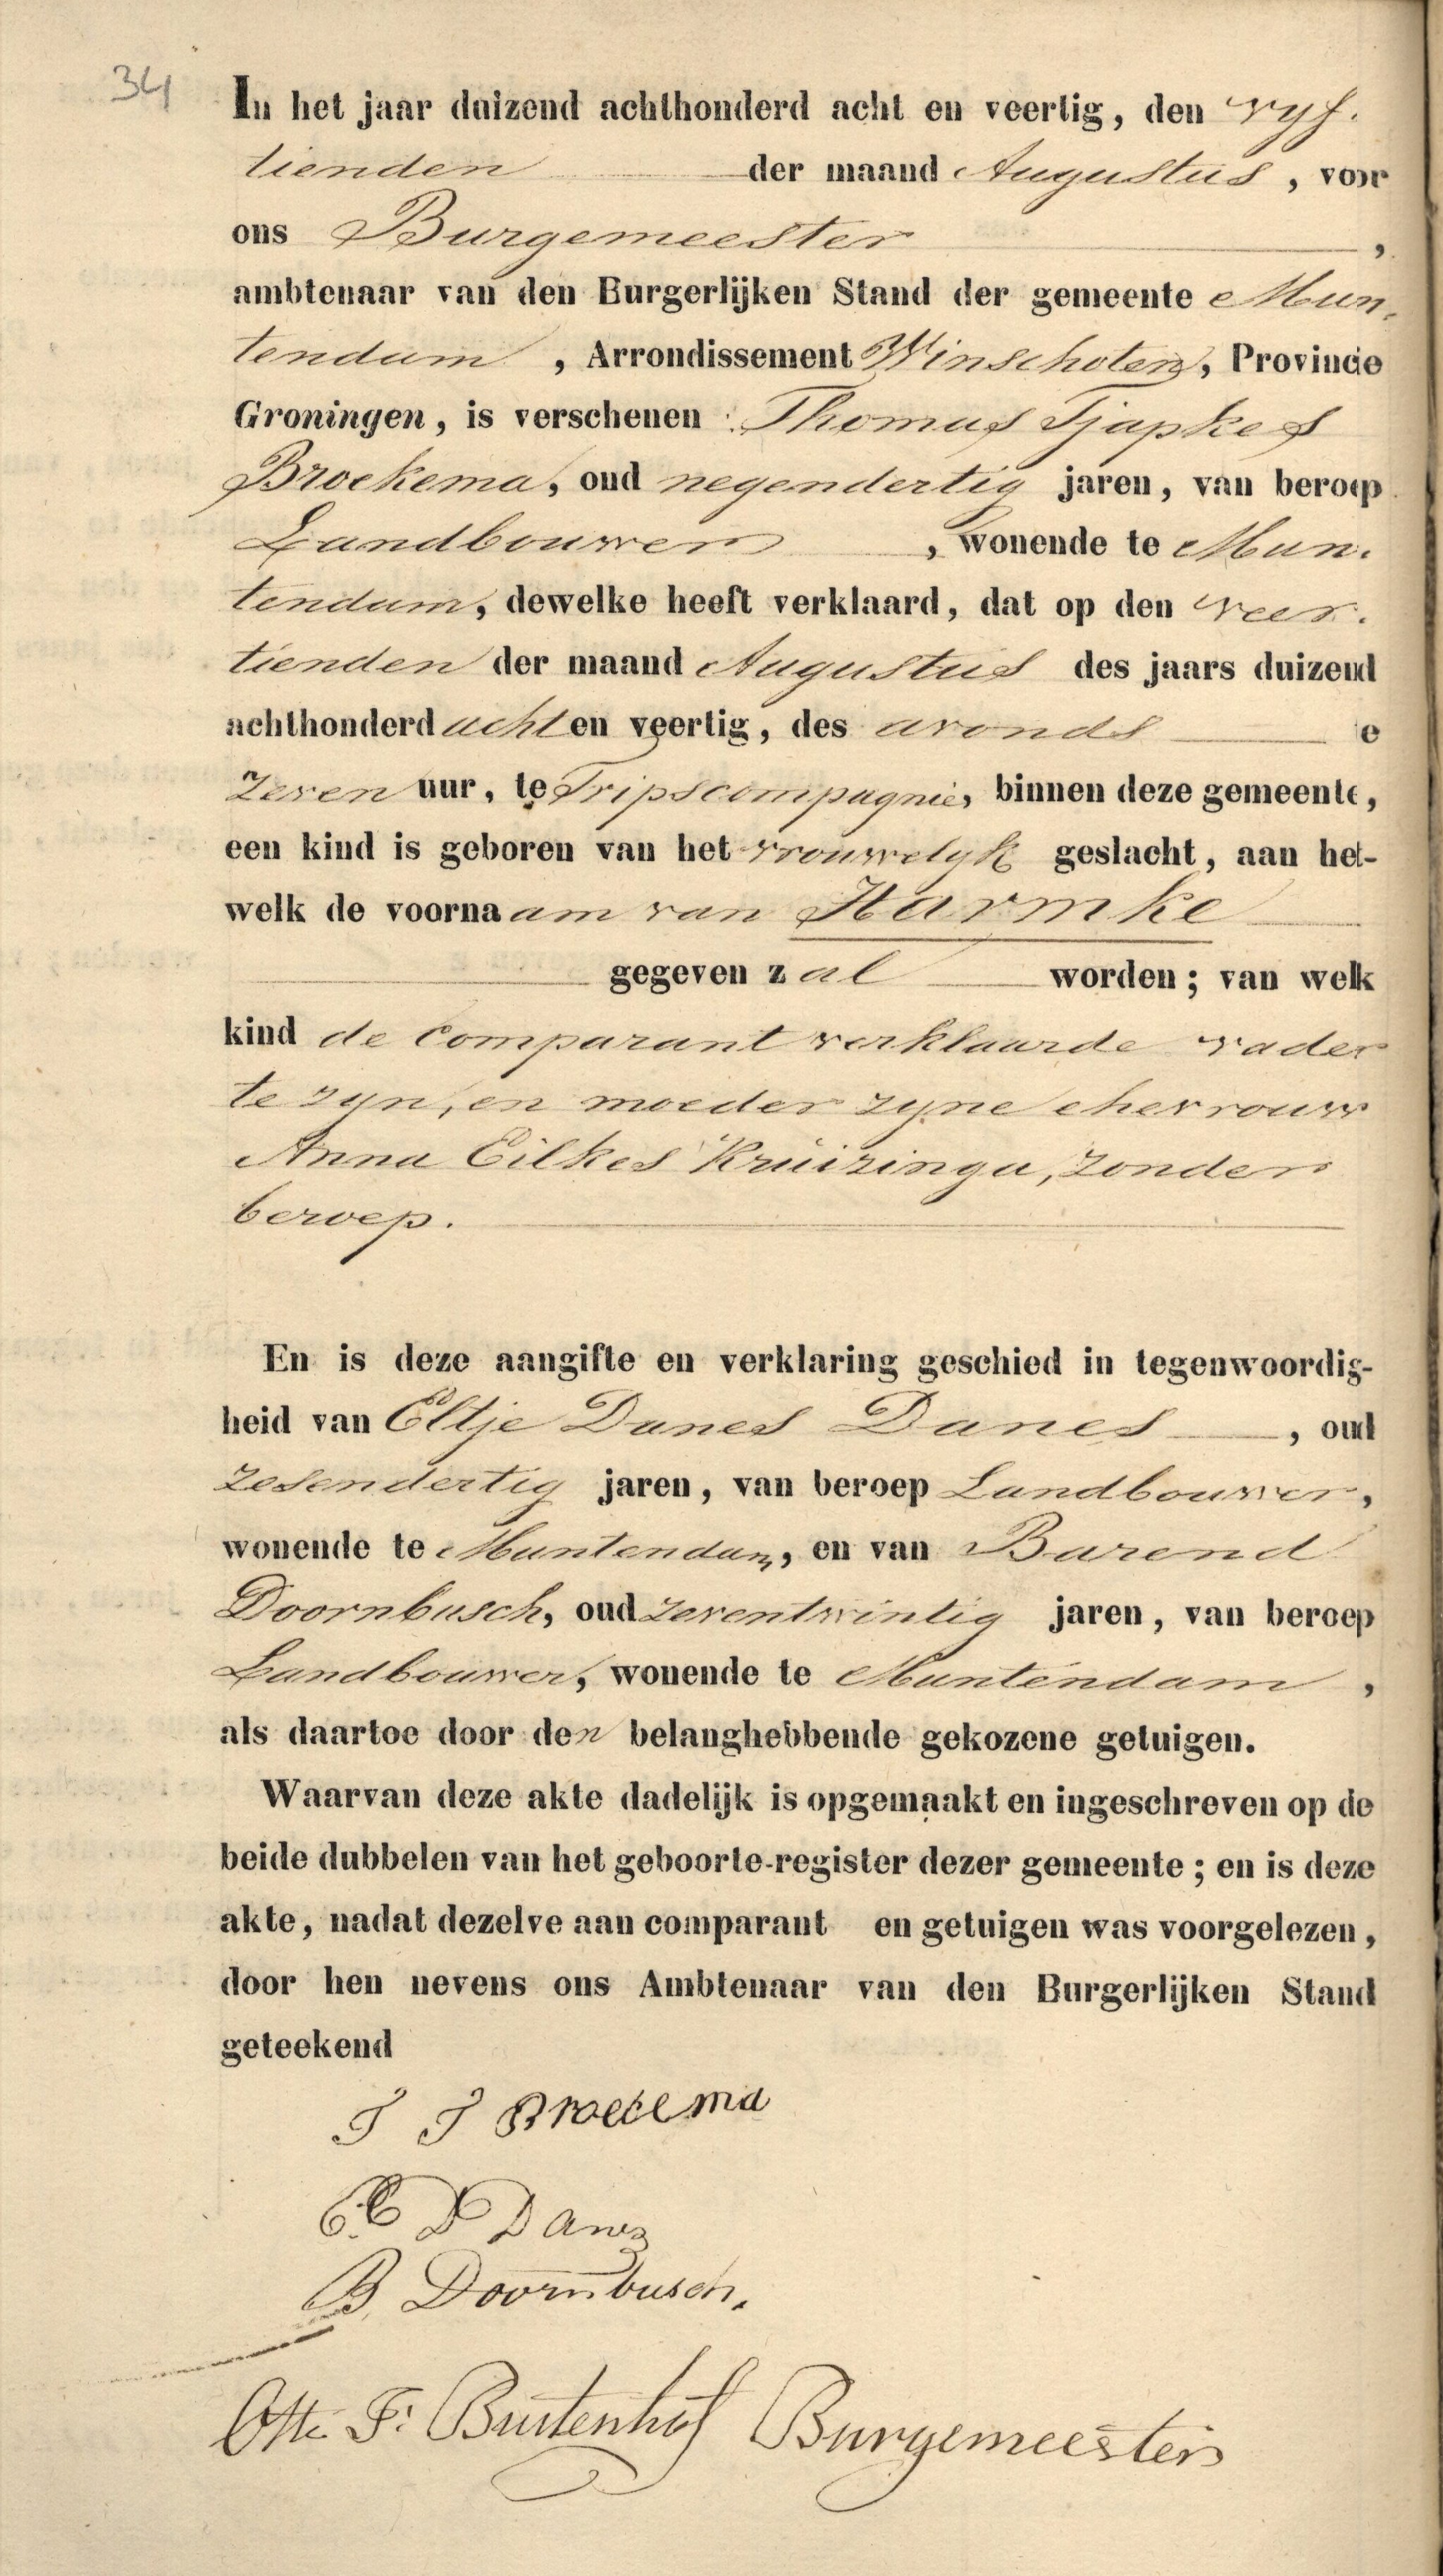 34
In het jaar duizend achthonderd acht en veertig, den vyf.
tienden der maand Augustus, voor
ons Burgemeester,
ambtenaar van den Burgerlijken Stand der gemeente Mun.
tendam, Arrondissement Winschoten, Provincie
Groningen, is verschenen: Thomas Tjapkes
Broekema, oud negendertig jaren, van beroep
Landbouwer, wonende te Mun.
tendam, dewelke heeft verklaard, dat op den veer.
tienden der maand Augustus des jaars duizend
achthonderd acht en veertig, des avonds e
zeven uur, te Tripscompagnie, binnen deze gemeente,
een kind is geboren van het vrouwelyk geslacht, aan het-
welk de voornaam van Harmke
gegeven zal worden; van welk
kind de Comparant verklaarde vader
te zyn, en moeder zyne ehevrouw
Anna Eilkes Kruizinga, zonder
beroep.
En is deze aangifte en verklaring geschied in tegenwoordig-
heid van Eltje Danes Danes, oud
zesendertig jaren, van beroep Landbouwer,
wonende te Muntendam, en van Barend
Doornbusch, oud zeventwintig jaren, van beroep
Landbouwer, wonende te Muntendam,
als daartoe door den belanghebbende gekozene getuigen.
Waarvan deze akte dadelijk is opgemaakt en ingeschreven op de
beide dubbelen van het geboorte-register dezer gemeente; en is deze
akte, nadat dezelve aan comparant en getuigen was voorgelezen,
door hen nevens ons Ambtenaar van den Burgerlijken Stand
geteekend
T T Broekema
E D Danes
B Doornbusch.
Otto F: Buitenhof Burgemeester